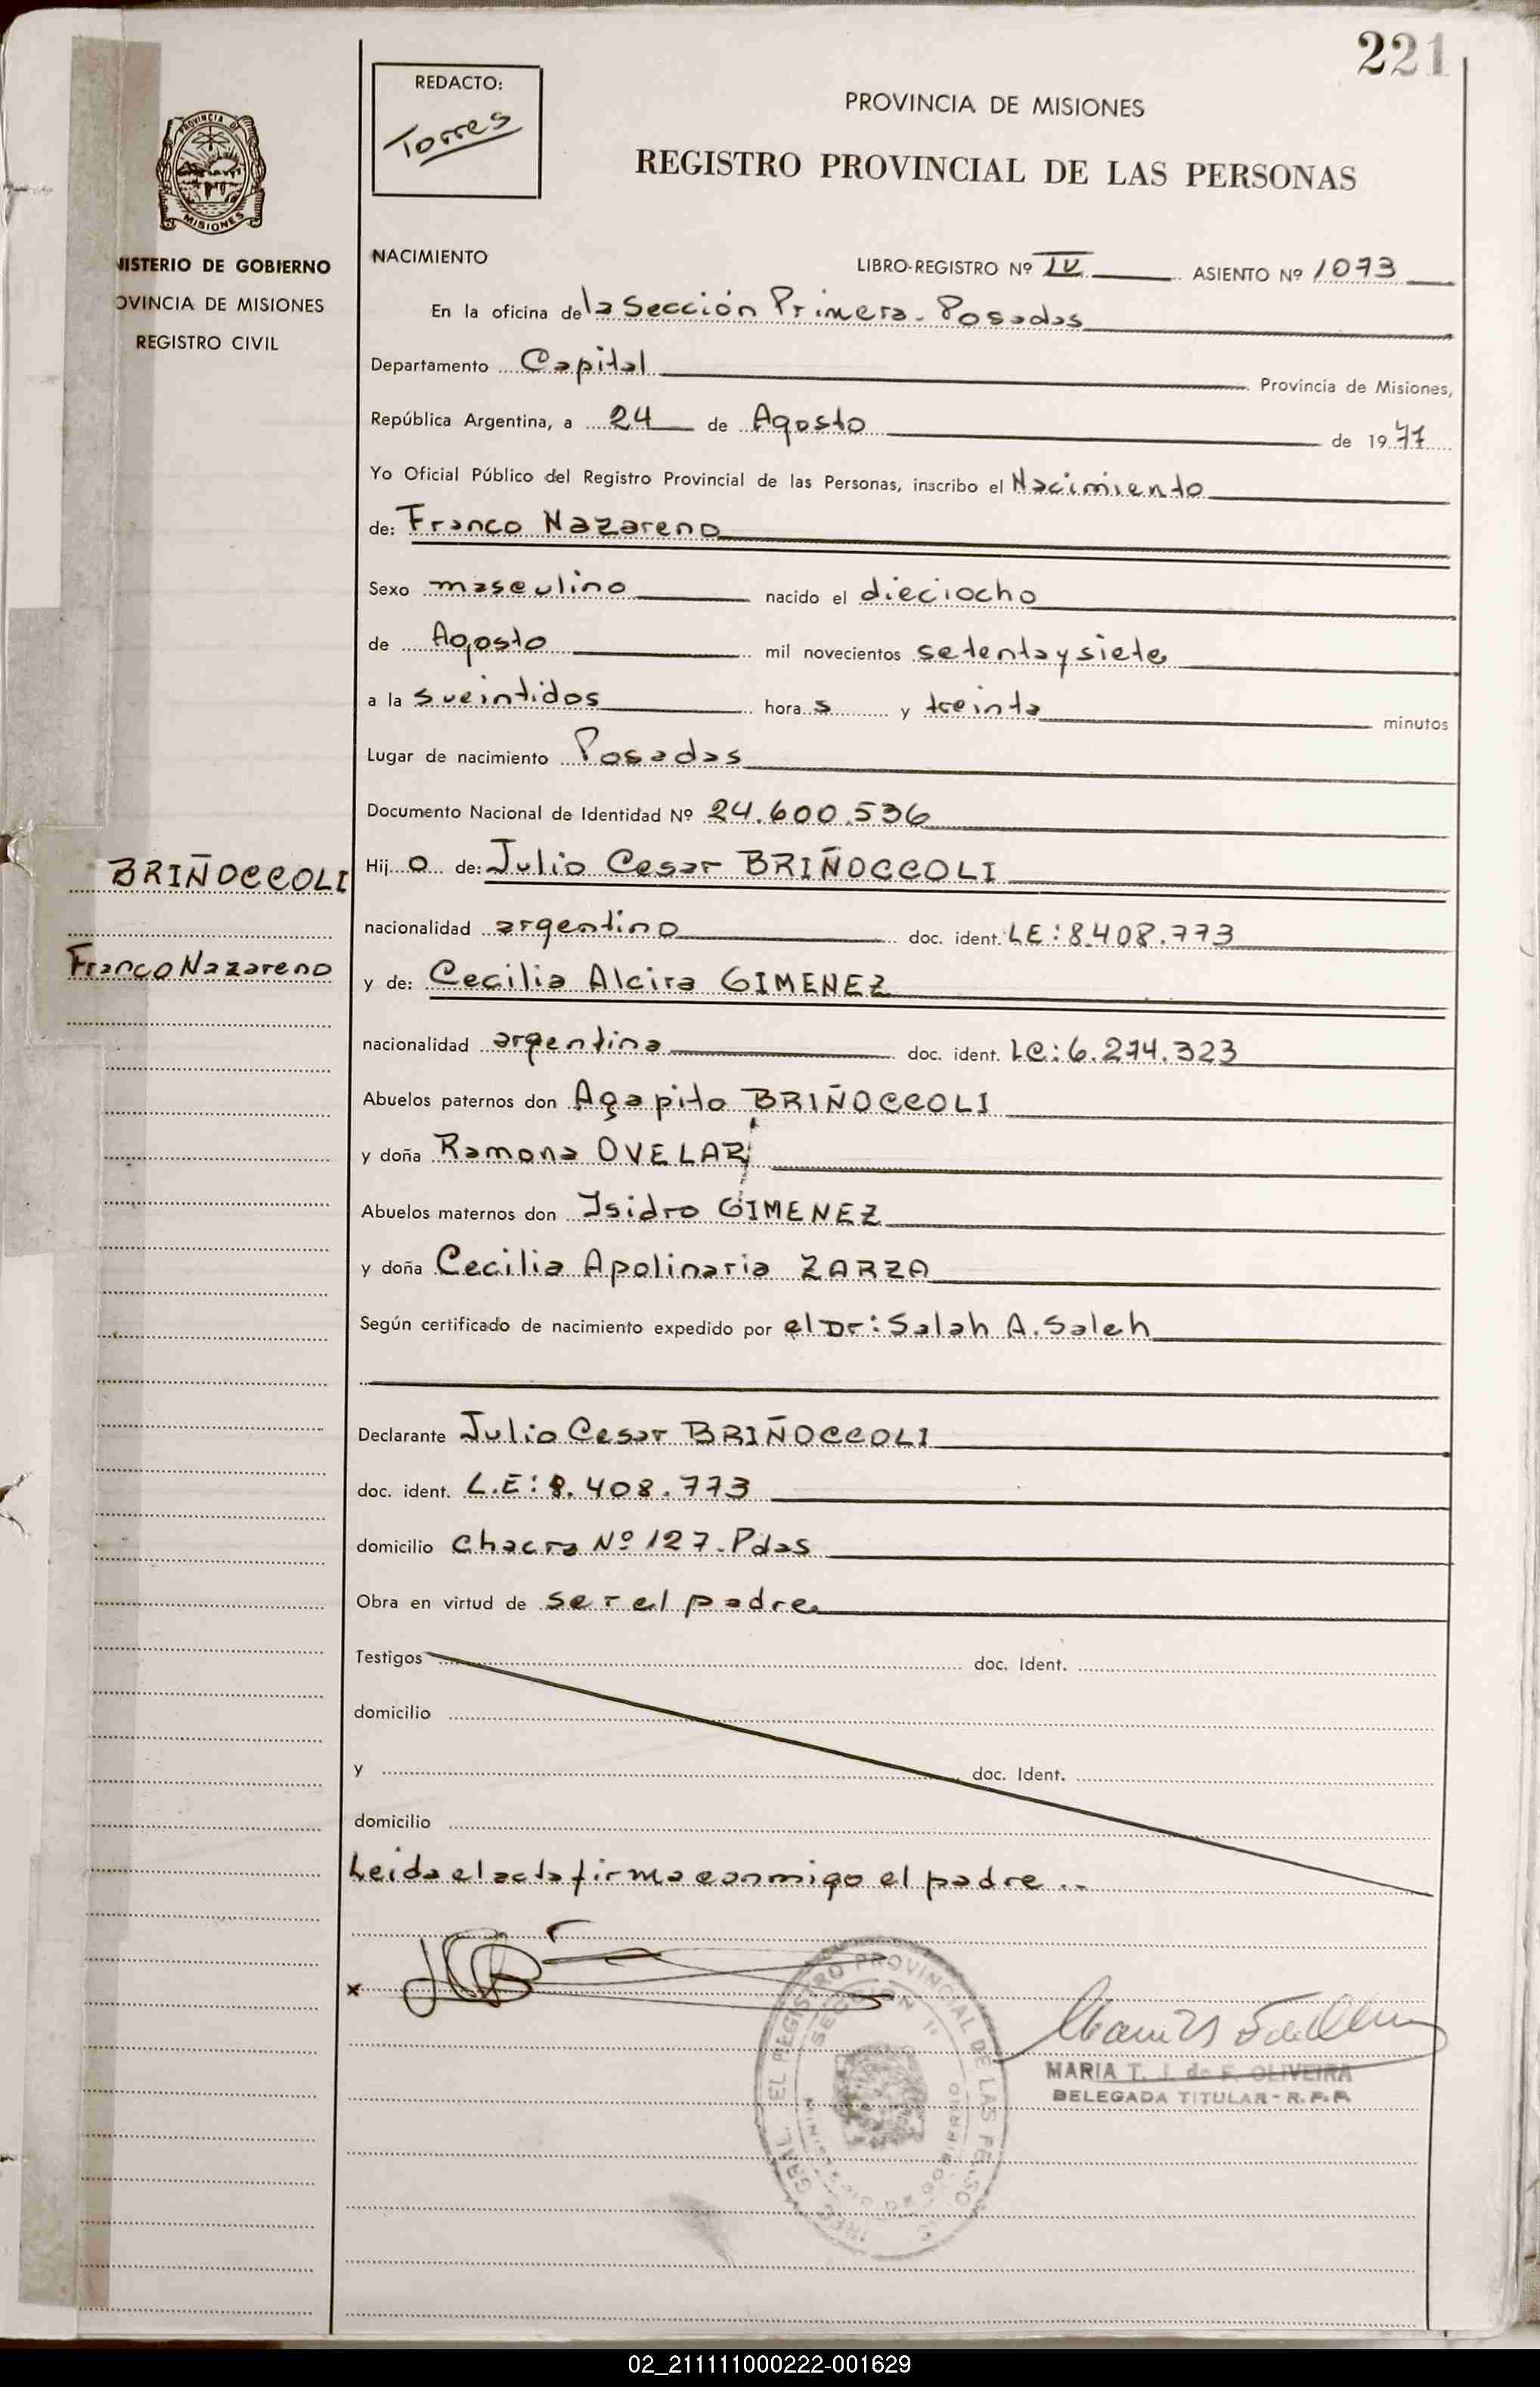 221
REDACTO:
Torres
PROVINCIA DE MISIONES
REGISTRO PROVINCIAL DE LAS PERSONAS
PROVINCIA DE
MISIONES
NISTERIO DE GOBIERNO
OVINCIA DE MISIONES
REGISTRO CIVIL
NACIMIENTO LIBRO-REGISTRO Nº IV ASIENTO Nº 1073
En la oficina de la Sección Primera - Posadas
Departamento Capital Provincia de Misiones,
República Argentina, a 24 de Agosto de 1977
Yo Oficial Público del Registro Provincial de las Personas, inscribo el Nacimiento
de: Franco Nazareno
Sexo masculino nacido el dieciocho
de Agosto mil novecientos setenta y siete
a la s veintidos hora s y treinta minutos
Lugar de nacimiento Posadas
Documento Nacional de Identidad Nº 24.600.536
BRIÑOCCOLI
Franco Nazareno
Hij o de: Julio Cesar BRIÑOCCOLI
nacionalidad argentino doc. ident. LE: 8.408.773
y de: Cecilia Alcira GIMENEZ
nacionalidad argentina doc. ident. LC: 6.274.323
Abuelos paternos don Agapito BRIÑOCCOLI
y doña Ramona OVELAR
Abuelos maternos don Isidro GIMENEZ
y doña Cecilia Apolinaria ZARZA
Según certificado de nacimiento expedido por el Dr: Salah A. Saleh
Declarante Julio Cesar BRIÑOCCOLI
doc. ident. L.E: 8.408.773
domicilio Chacra Nº 127. Pdas
Obra en virtud de ser el padre
Testigos doc. Ident.
domicilio
y doc. Ident.
domicilio
Leida el acta firma conmigo el padre..
x
EL REGISTRO PROVINCIAL DE LAS PERSO
SECCION 1ª
MARIA T. J. de F. OLIVEIRA
DELEGADA TITULAR - R.P.P.
02_211111000222-001629